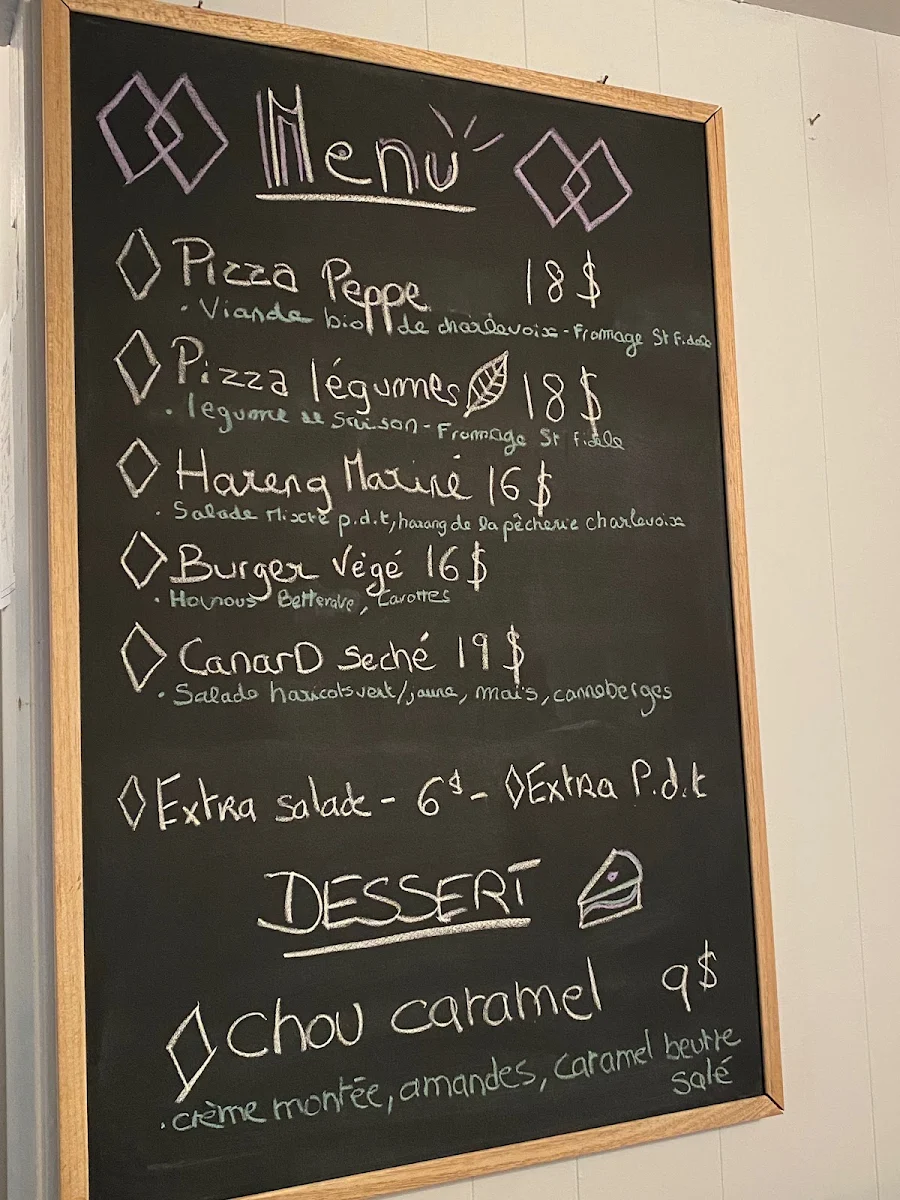 Menu
Pizza Peppe 18$
· Viande bio de charlevoix - Fromage St Fidele
Pizza légumes 18$
· légume de saison - Fromage St Fidele
Hareng Mariné 16$
· Salade Mixte p.d.t, harang de la pêcherie charlevoix
Burger végé 16$
· Houmous Betterave, Carottes
CanarD Seché 19$
· Salade haricots vert/jaune, maïs, canneberges
Extra salade - 6$ - Extra P.d.t
DESSERT
Chou caramel 9$
· crème montée, amandes, caramel beurre
salé